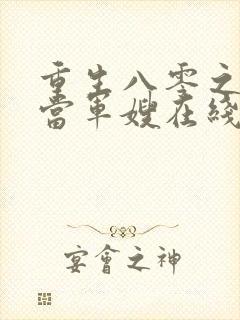 重生八零之
當軍嫂在綫
宴會之神